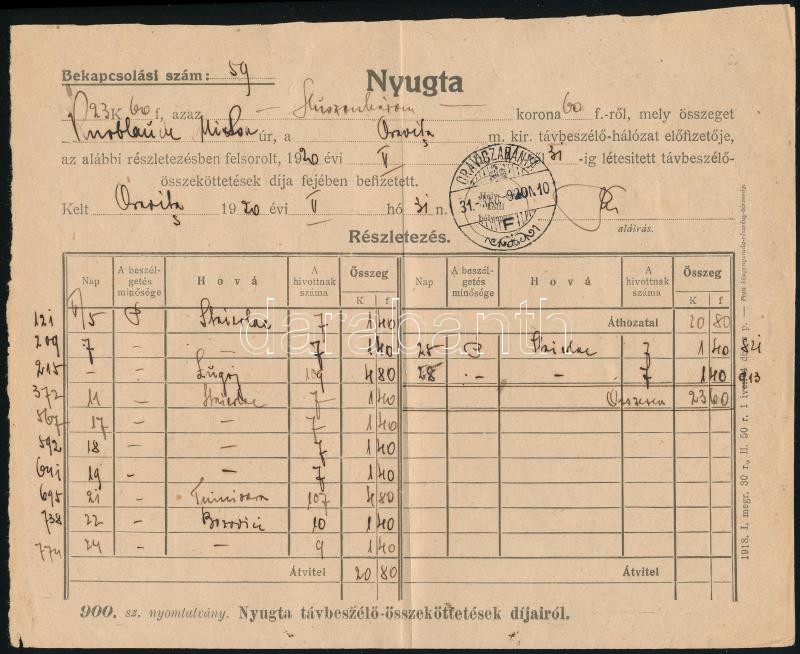 Bekapcsolási szám: 59
Nyugta
23 K 60 f, azaz — Huszonhárom — korona 60 f.-ről, mely összeget
úr, a Oravița m. kir. távbeszélő-hálózat előfizetője,
az alábbi részletezésben felsorolt, 1920 évi V 31-ig létesitett távbeszélő-
összeköttetések díja fejében befizetett.
Kelt Oravița 1920 évi V hó 31n.
ORAVICZABÁNYA
aláirás.
Részletezés.
Nap A beszélgetés minősége Hová A hivottnak száma Összeg K f Nap A beszélgetés minősége Hová A hivottnak száma Összeg K f
121 V/5 P 7 1 40 Áthozatal 20 80
209 7 — — 7 1 40 25 P 7 1 40 821
215 — — Lugoj 109 4 80 28 — — 7 1 40 913
372 11 — 7 1 40 Összesen 23 60
567 17 — — 7 1 40
592 18 — — 7 1 40
641 19 — — 7 1 40
695 21 — Timisoara 107 4 80
738 22 — Bozovici 10 1 40
774 24 — — 9 1 40
Átvitel 20 80 Átvitel
900. sz. nyomtatvány. Nyugta távbeszélő-összeköttetések díjairól.
darabanth